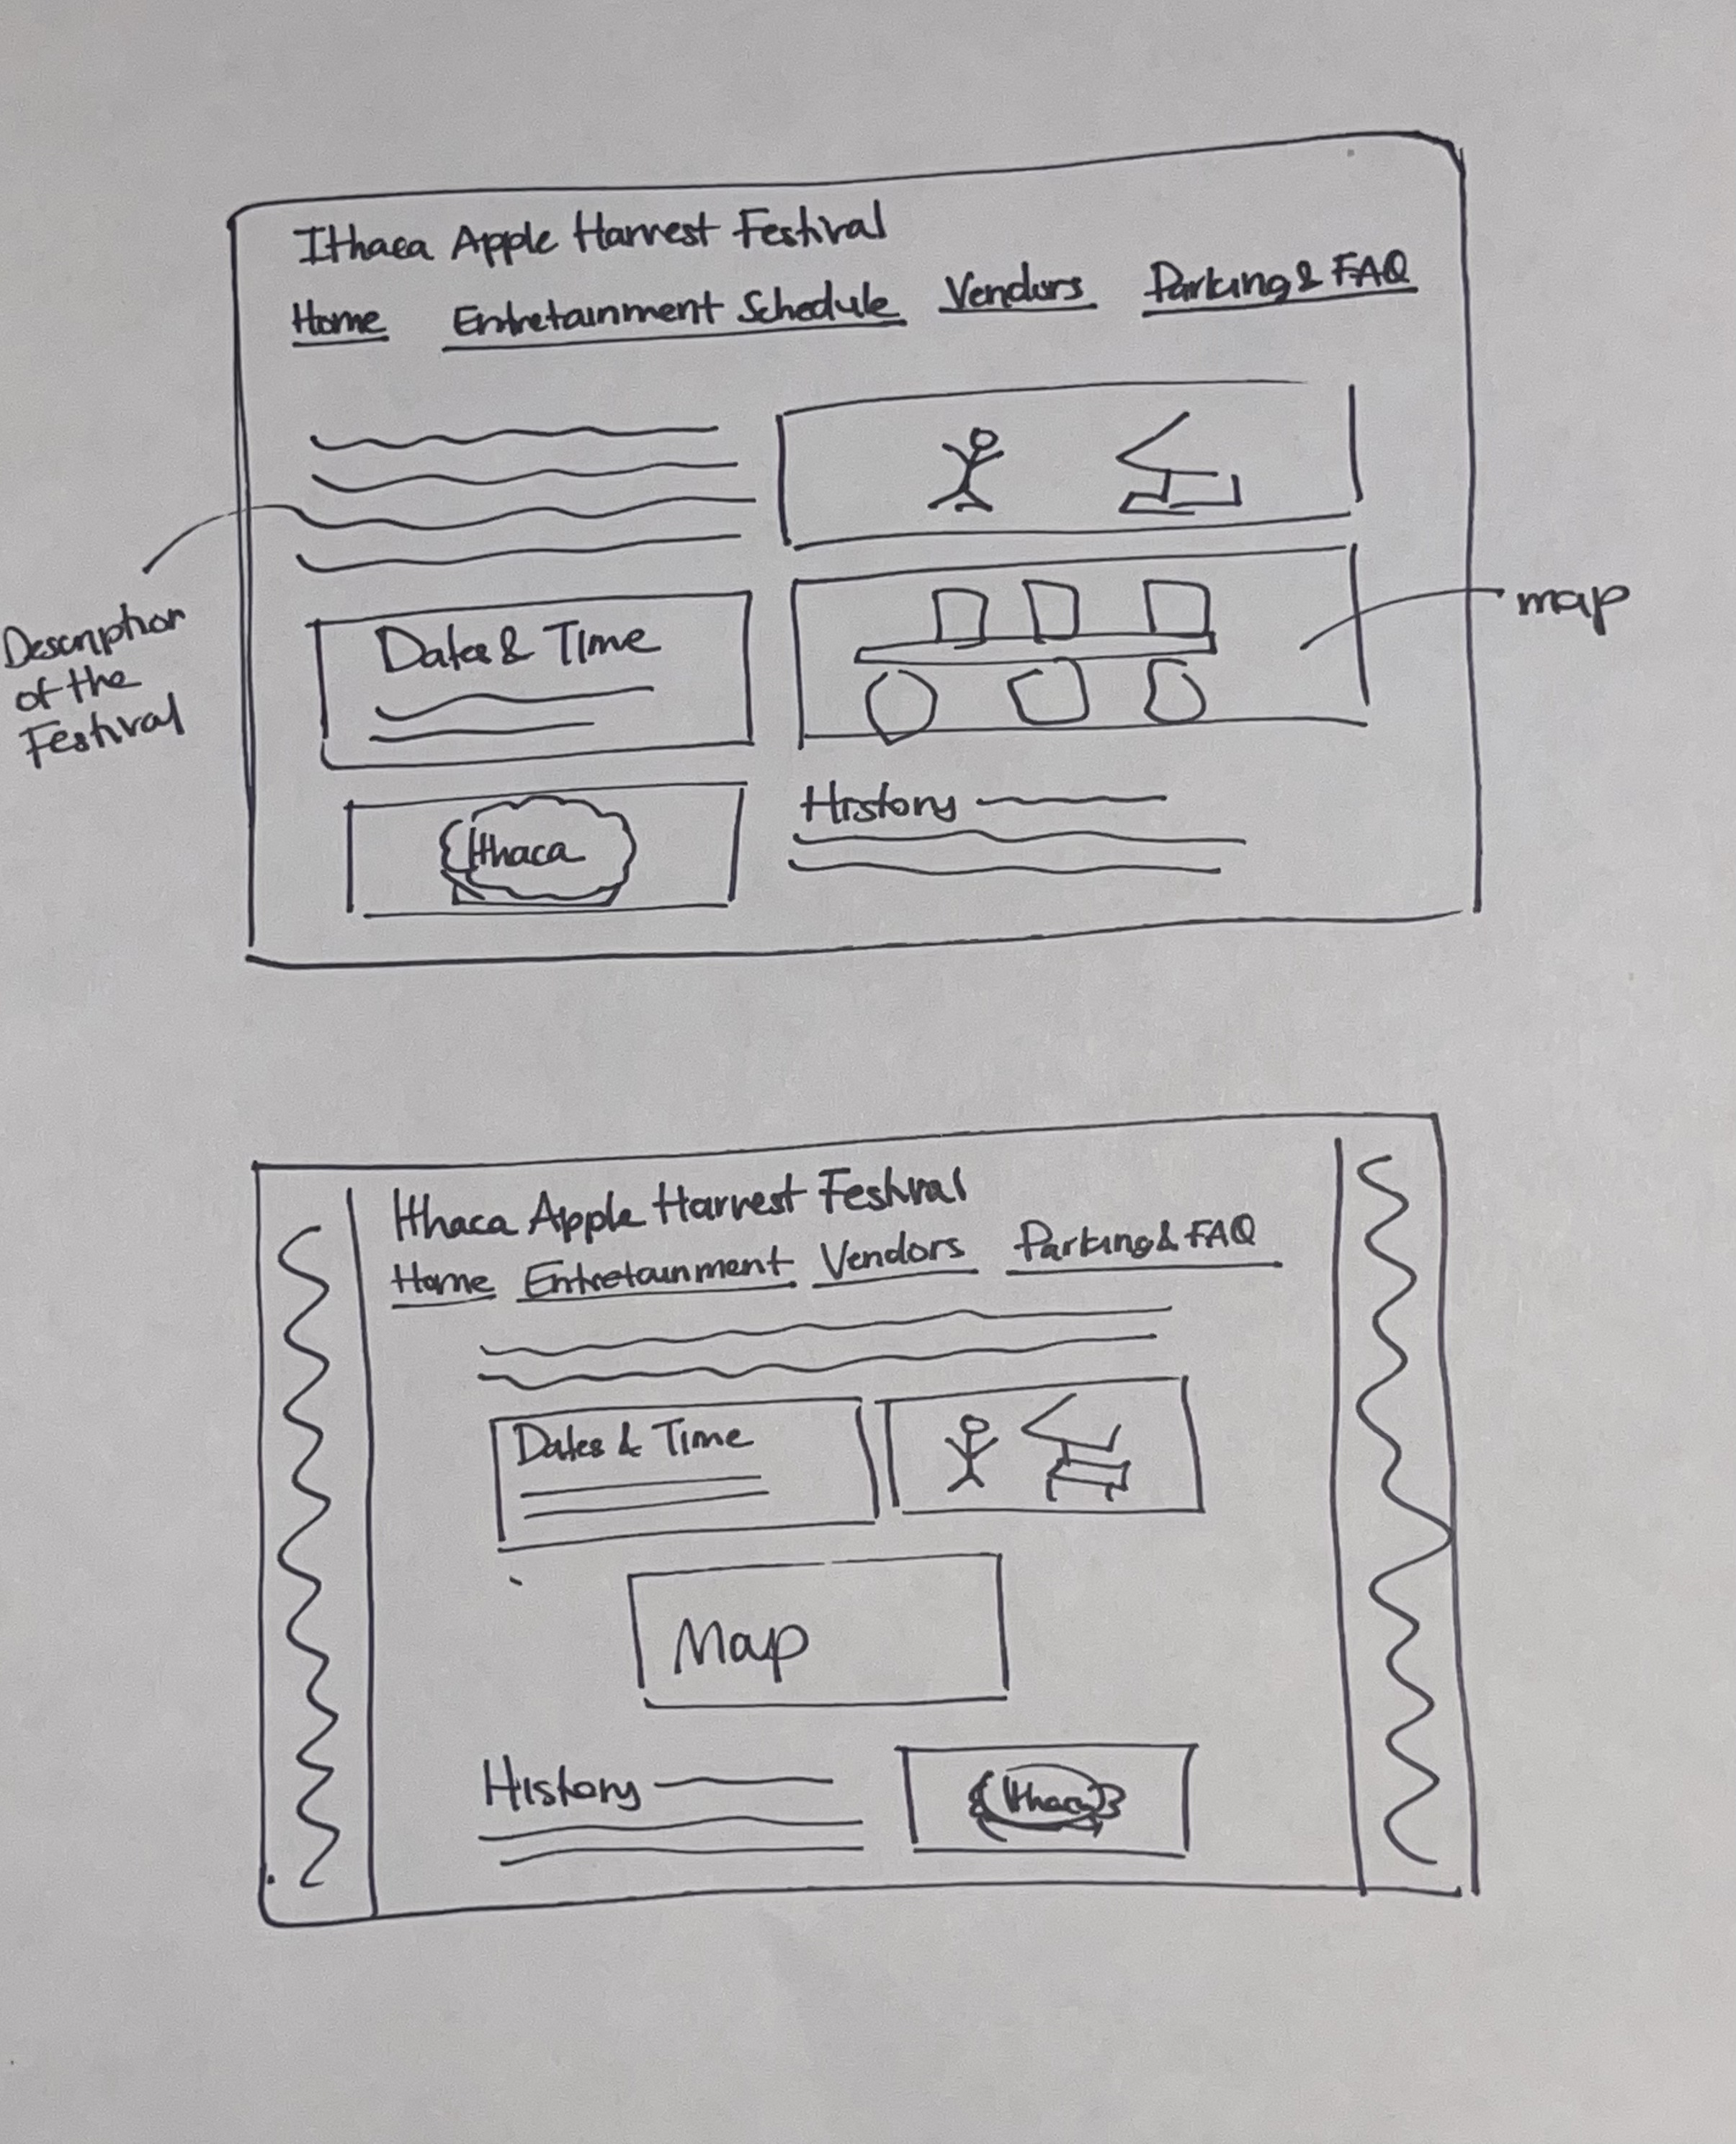 Ithaca Apple Harvest Festival
Home Entretainment Schedule Vendors Parking & FAQ
Description
of the
Festival
map
Dates & Time
Ithaca
History
Ithaca Apple Harvest Festival
Home Entretainment Vendors Parking & FAQ
Dates & Time
Map
History
Ithaca